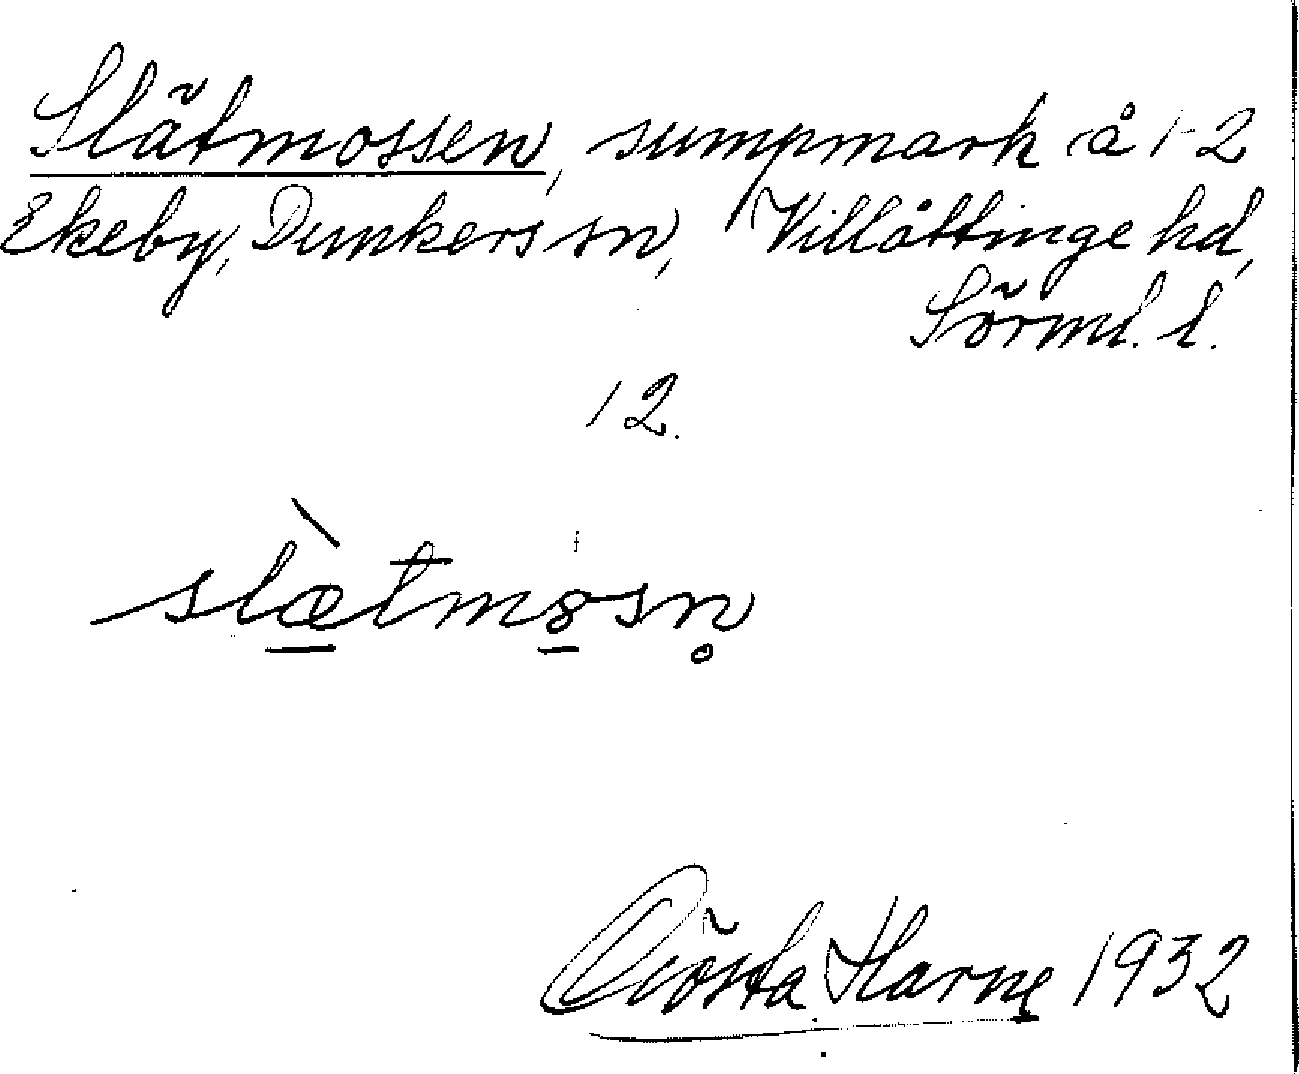 Slätmossen, sumpmark å 1-2
Ekeby, Dunkers sn, Villåttinge hd,
Sörml. l.
12.
slætmøsn̥
Gösta Harne 1932